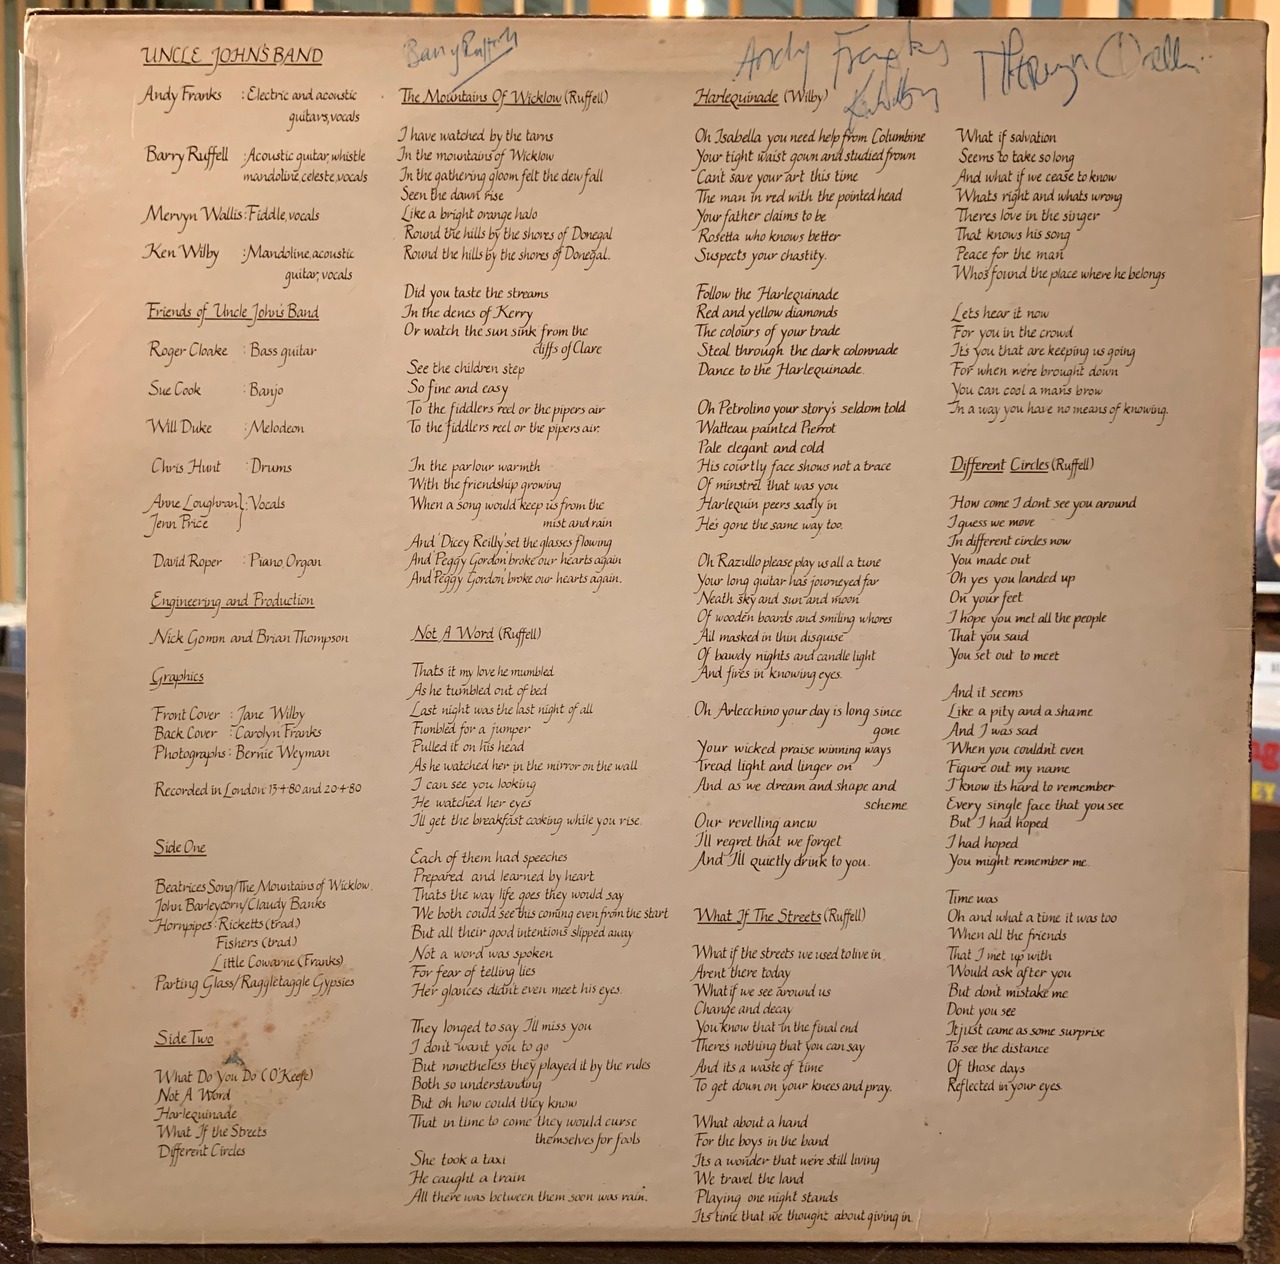 UNCLE JOHN'S BAND
Andy Franks : Electric and acoustic
guitars, vocals
Barry Ruffell : Acoustic guitar, whistle
mandoline, celeste, vocals
Mervyn Wallis : Fiddle, vocals
Ken Wilby : Mandoline, acoustic
guitar, vocals
Friends of Uncle John's Band
Roger Cloake : Bass guitar
Sue Cook : Banjo
Will Duke : Melodeon
Chris Hunt : Drums
Anne Loughran } : Vocals
Jenn Price
David Roper : Piano, Organ
Engineering and Production
Nick Gomm and Brian Thompson
Graphics
Front Cover : Jane Wilby
Back Cover : Carolyn Franks
Photographs : Bernie Weyman
Recorded in London 13·4·80 and 20·4·80
Side One
Beatrices Song/The Mountains of Wicklow.
John Barleycorn/Claudy Banks
Hornpipes : Ricketts (trad.)
Fishers (trad)
Little Cowarne (Franks)
Parting Glass/Raggletaggle Gypsies
Side Two
What Do You Do (O'Keefe)
Not A Word
Harlequinade
What If the Streets
Different Circles
Barry Ruffell
The Mountains Of Wicklow (Ruffell)
I have watched by the tarns
In the mountains of Wicklow
In the gathering gloom felt the dew fall
Seen the dawn rise
Like a bright orange halo
Round the hills by the shores of Donegal
Round the hills by the shores of Donegal.
Did you taste the streams
In the denes of Kerry
Or watch the sun sink from the
cliffs of Clare
See the children step
So fine and easy
To the fiddlers reel or the pipers air
To the fiddlers reel or the pipers air.
In the parlour warmth
With the friendship growing
When a song would keep us from the
mist and rain
And 'Dicey Reilly' set the glasses flowing
And 'Peggy Gordon' broke our hearts again
And 'Peggy Gordon' broke our hearts again.
Not A Word (Ruffell)
Thats it my love he mumbled
As he tumbled out of bed
Last night was the last night of all
Fumbled for a jumper
Pulled it on his head
As he watched her in the mirror on the wall
I can see you looking
He watched her eyes
I'll get the breakfast cooking while you rise.
Each of them had speeches
Prepared and learned by heart
Thats the way life goes they would say
We both could see this coming even from the start
But all their good intentions slipped away
Not a word was spoken
For fear of telling lies
Her glances didn't even meet his eyes.
They longed to say I'll miss you
I don't want you to go
But nonetheless they played it by the rules
Both so understanding
But oh how could they know
That in time to come they would curse
themselves for fools
She took a taxi
He caught a train
All there was between them soon was rain.
Andy Franks
Ken Wilby
Harlequinade (Wilby)
Oh Isabella you need help from Columbine
Your tight waist gown and studied frown
Can't save your art this time
The man in red with the pointed head
Your father claims to be
Rosetta who knows better
Suspects your chastity.
Follow the Harlequinade
Red and yellow diamonds
The colours of your trade
Steal through the dark colonnade
Dance to the Harlequinade.
Oh Petrolino your story's seldom told
Watteau painted Pierrot
Pale elegant and cold
His courtly face shows not a trace
Of minstrel that was you
Harlequin peers sadly in
He's gone the same way too.
Oh Razullo please play us all a tune
Your long guitar has journeyed far
Neath sky and sun and moon
Of wooden boards and smiling whores
All masked in thin disguise
Of bawdy nights and candle light
And fires in knowing eyes.
Oh Arlecchino your day is long since
gone
Your wicked praise winning ways
Tread light and linger on
And as we dream and shape and
scheme
Our revelling anew
I'll regret that we forget
And I'll quietly drink to you.
What If The Streets (Ruffell)
What if the streets we used to live in
Arent there today
What if we see around us
Change and decay
You know that in the final end
There's nothing that you can say
And its a waste of time
To get down on your knees and pray.
What about a hand
For the boys in the band
Its a wonder that we're still living
We travel the land
Playing one night stands
It's time that we thought about giving in.
What if salvation
Seems to take so long
And what if we cease to know
Whats right and whats wrong
Theres love in the singer
That knows his song
Peace for the man
Who's found the place where he belongs
Lets hear it now
For you in the crowd
It's you that are keeping us going
For when we're brought down
You can cool a man's brow
In a way you have no means of knowing.
Different Circles (Ruffell)
How come I dont see you around
I guess we move
In different circles now
You made out
Oh yes you landed up
On your feet
I hope you met all the people
That you said
You set out to meet
And it seems
Like a pity and a shame
And I was sad
When you couldn't even
Figure out my name
I know its hard to remember
Every single face that you see
But I had hoped
I had hoped
You might remember me.
Time was
Oh and what a time it was too
When all the friends
That I met up with
Would ask after you
But dont mistake me
Dont you see
It just came as some surprise
To see the distance
Of those days
Reflected in your eyes.